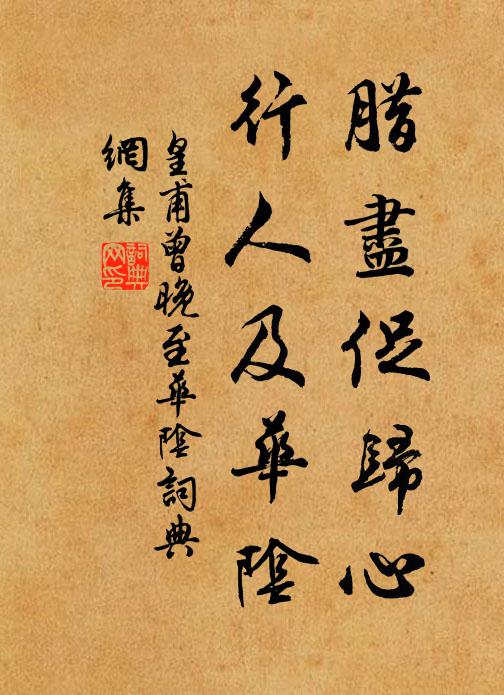 腊盡促歸心
行人及華陰
皇甫曾晚至華陰詞典
網集
詞典
网印